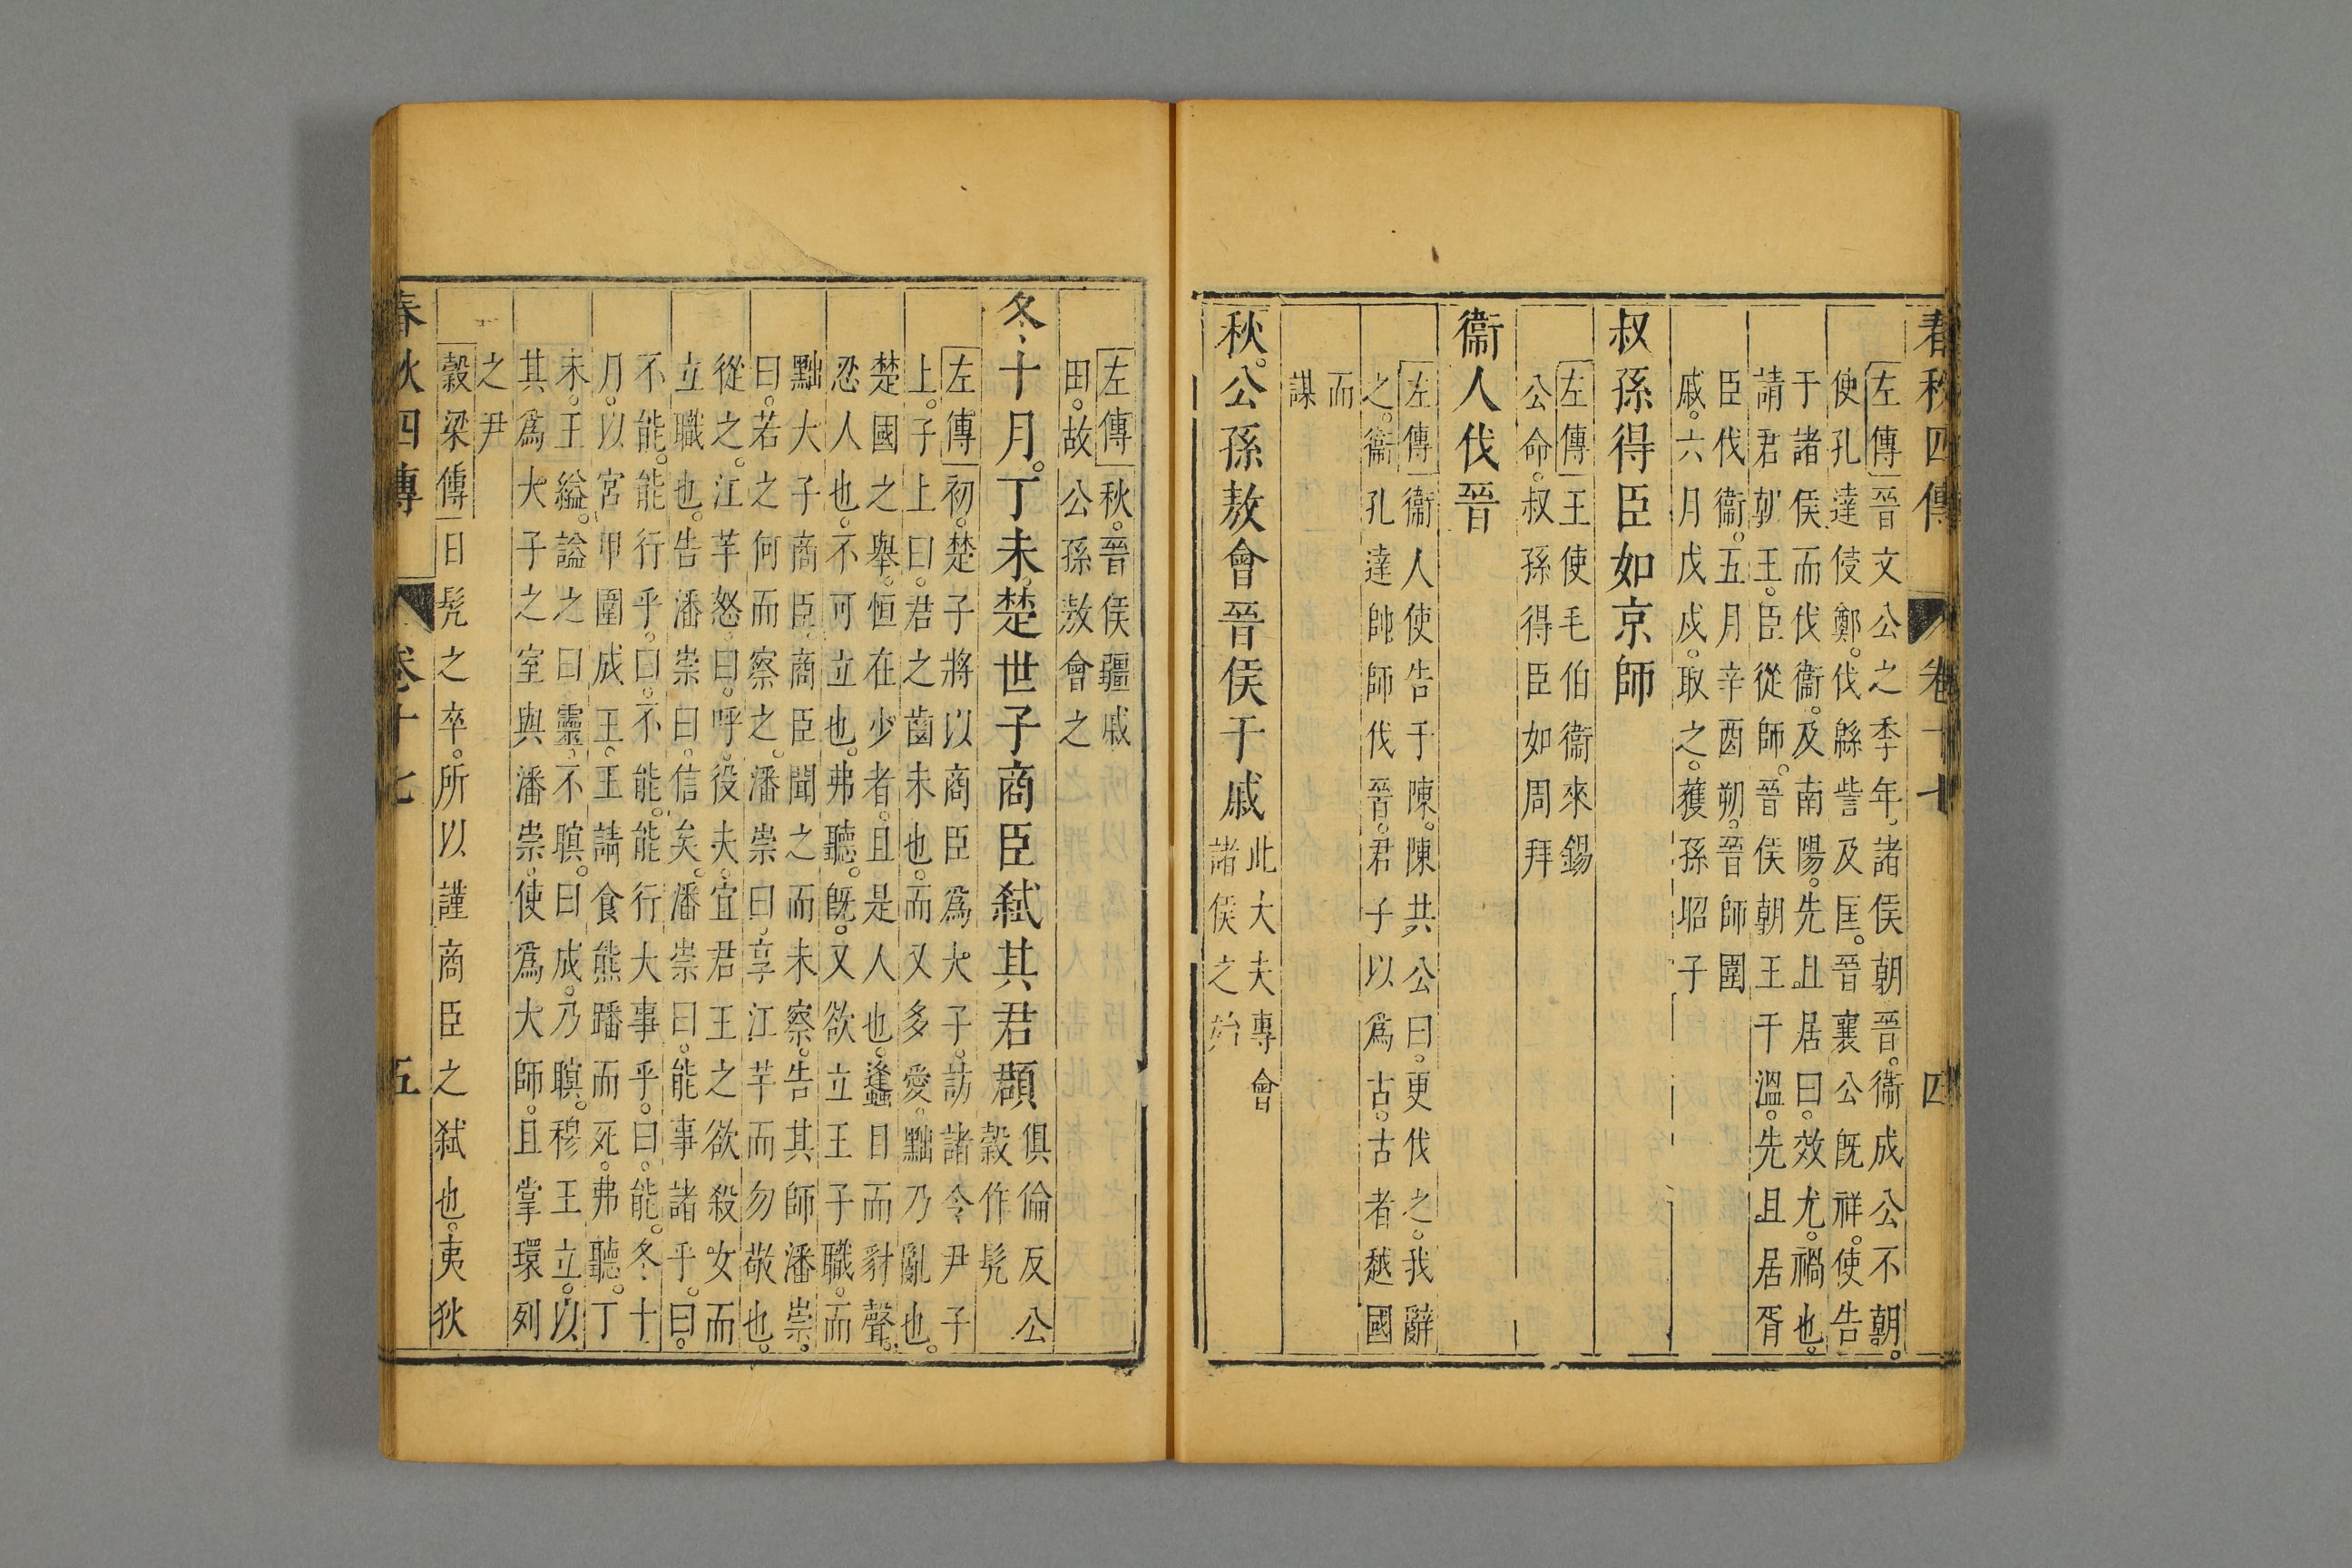 春秋四傳 卷十七 四
左傳晉文公之季年。諸侯朝晉。衞成公不朝。
使孔達侵鄭。伐緜訾及匡。晉襄公旣祥。使告
于諸侯而伐衞。及南陽。先且居曰。效尤。禍也。
請君朝王。臣從師。晉侯朝王于溫。先且居胥
臣伐衞。五月辛酉朔。晉師圍
戚。六月戊戌。取之。獲孫昭子
叔孫得臣如京師
左傳王使毛伯衞來錫
公命。叔孫得臣如周拜
衞人伐晉
左傳衞人使告于陳。陳共公曰。更伐之。我辭
之。衞孔達帥師伐晉。君子以爲古。古者越國
而
謀
秋。公孫敖會晉侯于戚 此大夫專會
諸侯之始
左傳秋。晉侯疆戚
田。故公孫敖會之
冬。十月。丁未。楚世子商臣弒其君頵 俱倫反公
穀作髡
左傳初。楚子將以商臣爲大子。訪諸令尹子
上。子上曰。君之齒未也。而又多愛。黜乃亂也。
楚國之舉。恒在少者。且是人也。蠭目而豺聲。
忍人也。不可立也。弗聽。旣。又欲立王子職。而
黜大子商臣。商臣聞之而未察。告其師潘崇
曰。若之何而察之。潘崇曰。享江芉而勿敬也。
從之。江芉怒曰。呼。役夫。宜君王之欲殺女而
立職也。告潘崇曰。信矣。潘崇曰。能事諸乎。曰。
不能。能行乎。曰。不能。能行大事乎。曰。能。冬。十
月。以宮甲圍成王。王請食熊蹯而死。弗聽。丁
未。王縊。謚之曰靈。不瞑。曰成。乃瞑。穆王立。以
其爲大子之室與潘崇。使爲大師。且掌環列
之尹
穀梁傳日髡之卒。所以謹商臣之弒也。夷狄
春秋四傳 卷十七 五